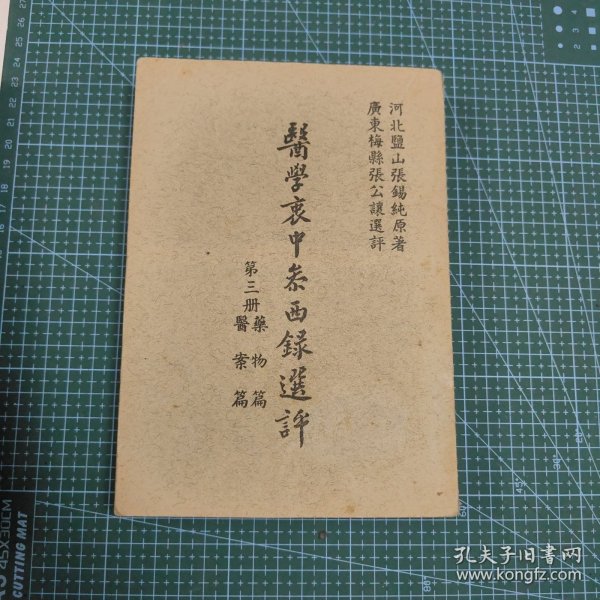 河北鹽山張錫純原著
廣東梅縣張公讓選評
醫學衷中参西録選評
第三册
藥物篇
醫案篇
45X30CM
CUTTING MAT
孔夫子旧書网
www.kongfz.com